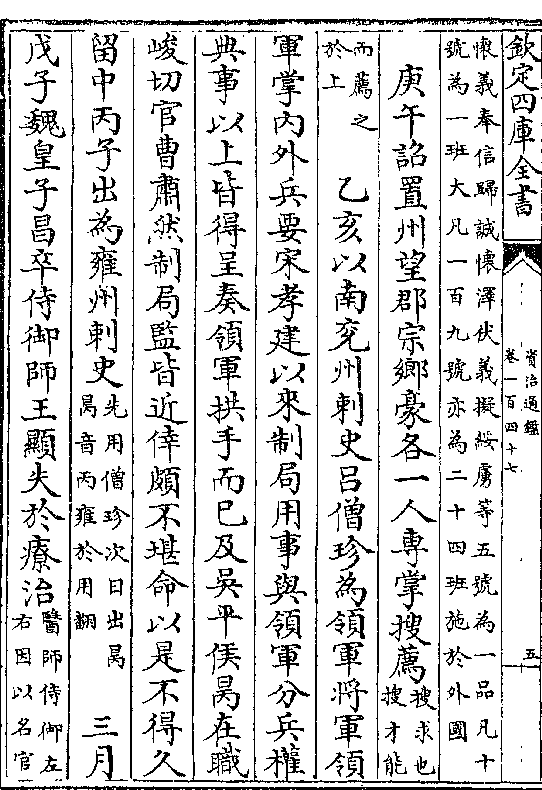 欽定四庫全書
資治通鑑
卷一百四十七
五
懷義奉信歸誠懷澤伏義擬綏虜等五號為一品凡十
號為一班大凡一百九號亦為二十四班施於外國
庚午詔置州望郡宗鄉豪各一人專掌搜薦搜求也搜才能
而薦之於上 乙亥以南兖州刺史吕僧珍為領軍將軍領
軍掌內外兵要宋孝建以來制局用事與領軍分兵權
典事以上皆得呈奏領軍拱手而已及吳平侯昺在職
峻切官曹肅然制局監皆近倖頗不堪命以是不得久
留中丙子出為雍州刺史先用僧珍次日出昺昺音丙雍於用翻 三月
戊子魏皇子昌卒侍御師王顯失於療治醫師侍御左右因以名官